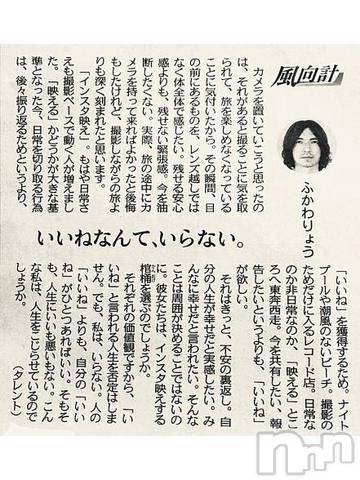 風向計
ふかわりょう
カメラを置いていこうと思ったの
は、それがあると撮ることに気を取
られて、旅を楽しめなくなっている
ことに気付いたから。その瞬間、目
の前にあるものを、レンズ越しでは
なく体全体で感じたい。残せる安心
感よりも、残せない緊張感。今を油
断したくない。実際、旅の途中にカ
メラを持って来ればよかったと後悔
もしたけれど、撮影しながらの旅よ
りも深く刻まれたと思います。
「インスタ映え」。もはや日常さ
えも撮影ベースで動く人が増えまし
た。「映える」かどうかが大きな基
準となった今、日常を切り取る行為
は、後々振り返るためというより、
いいねなんて、いらない。
「いいね」を獲得するため。ナイト
プールや潮風のないビーチ。撮影の
ためだけに入るレコード店。日常な
のか非日常なのか、「映える」とこ
ろへ東奔西走。今を共有したい、報
告したいというよりも、「いいね」
が欲しい。
それはきっと、不安の裏返し。自
分の人生が幸せだと実感したい。み
んなに幸せだと言われたい。そんな
ことは周囲が決めることではないの
に。彼女たちは、インスタ映えする
棺桶を選ぶのでしょうか。
それぞれの価値観ですから、「い
いね」と言われる人生を否定はしま
せん。でも、私は、いらない。人の
「いいね」よりも、自分の「いい
ね」がひとつあればいい。そもそ
も、人生にいいも悪いもない。こん
な私は、人生をこじらせているので
しょうか。
（タレント）